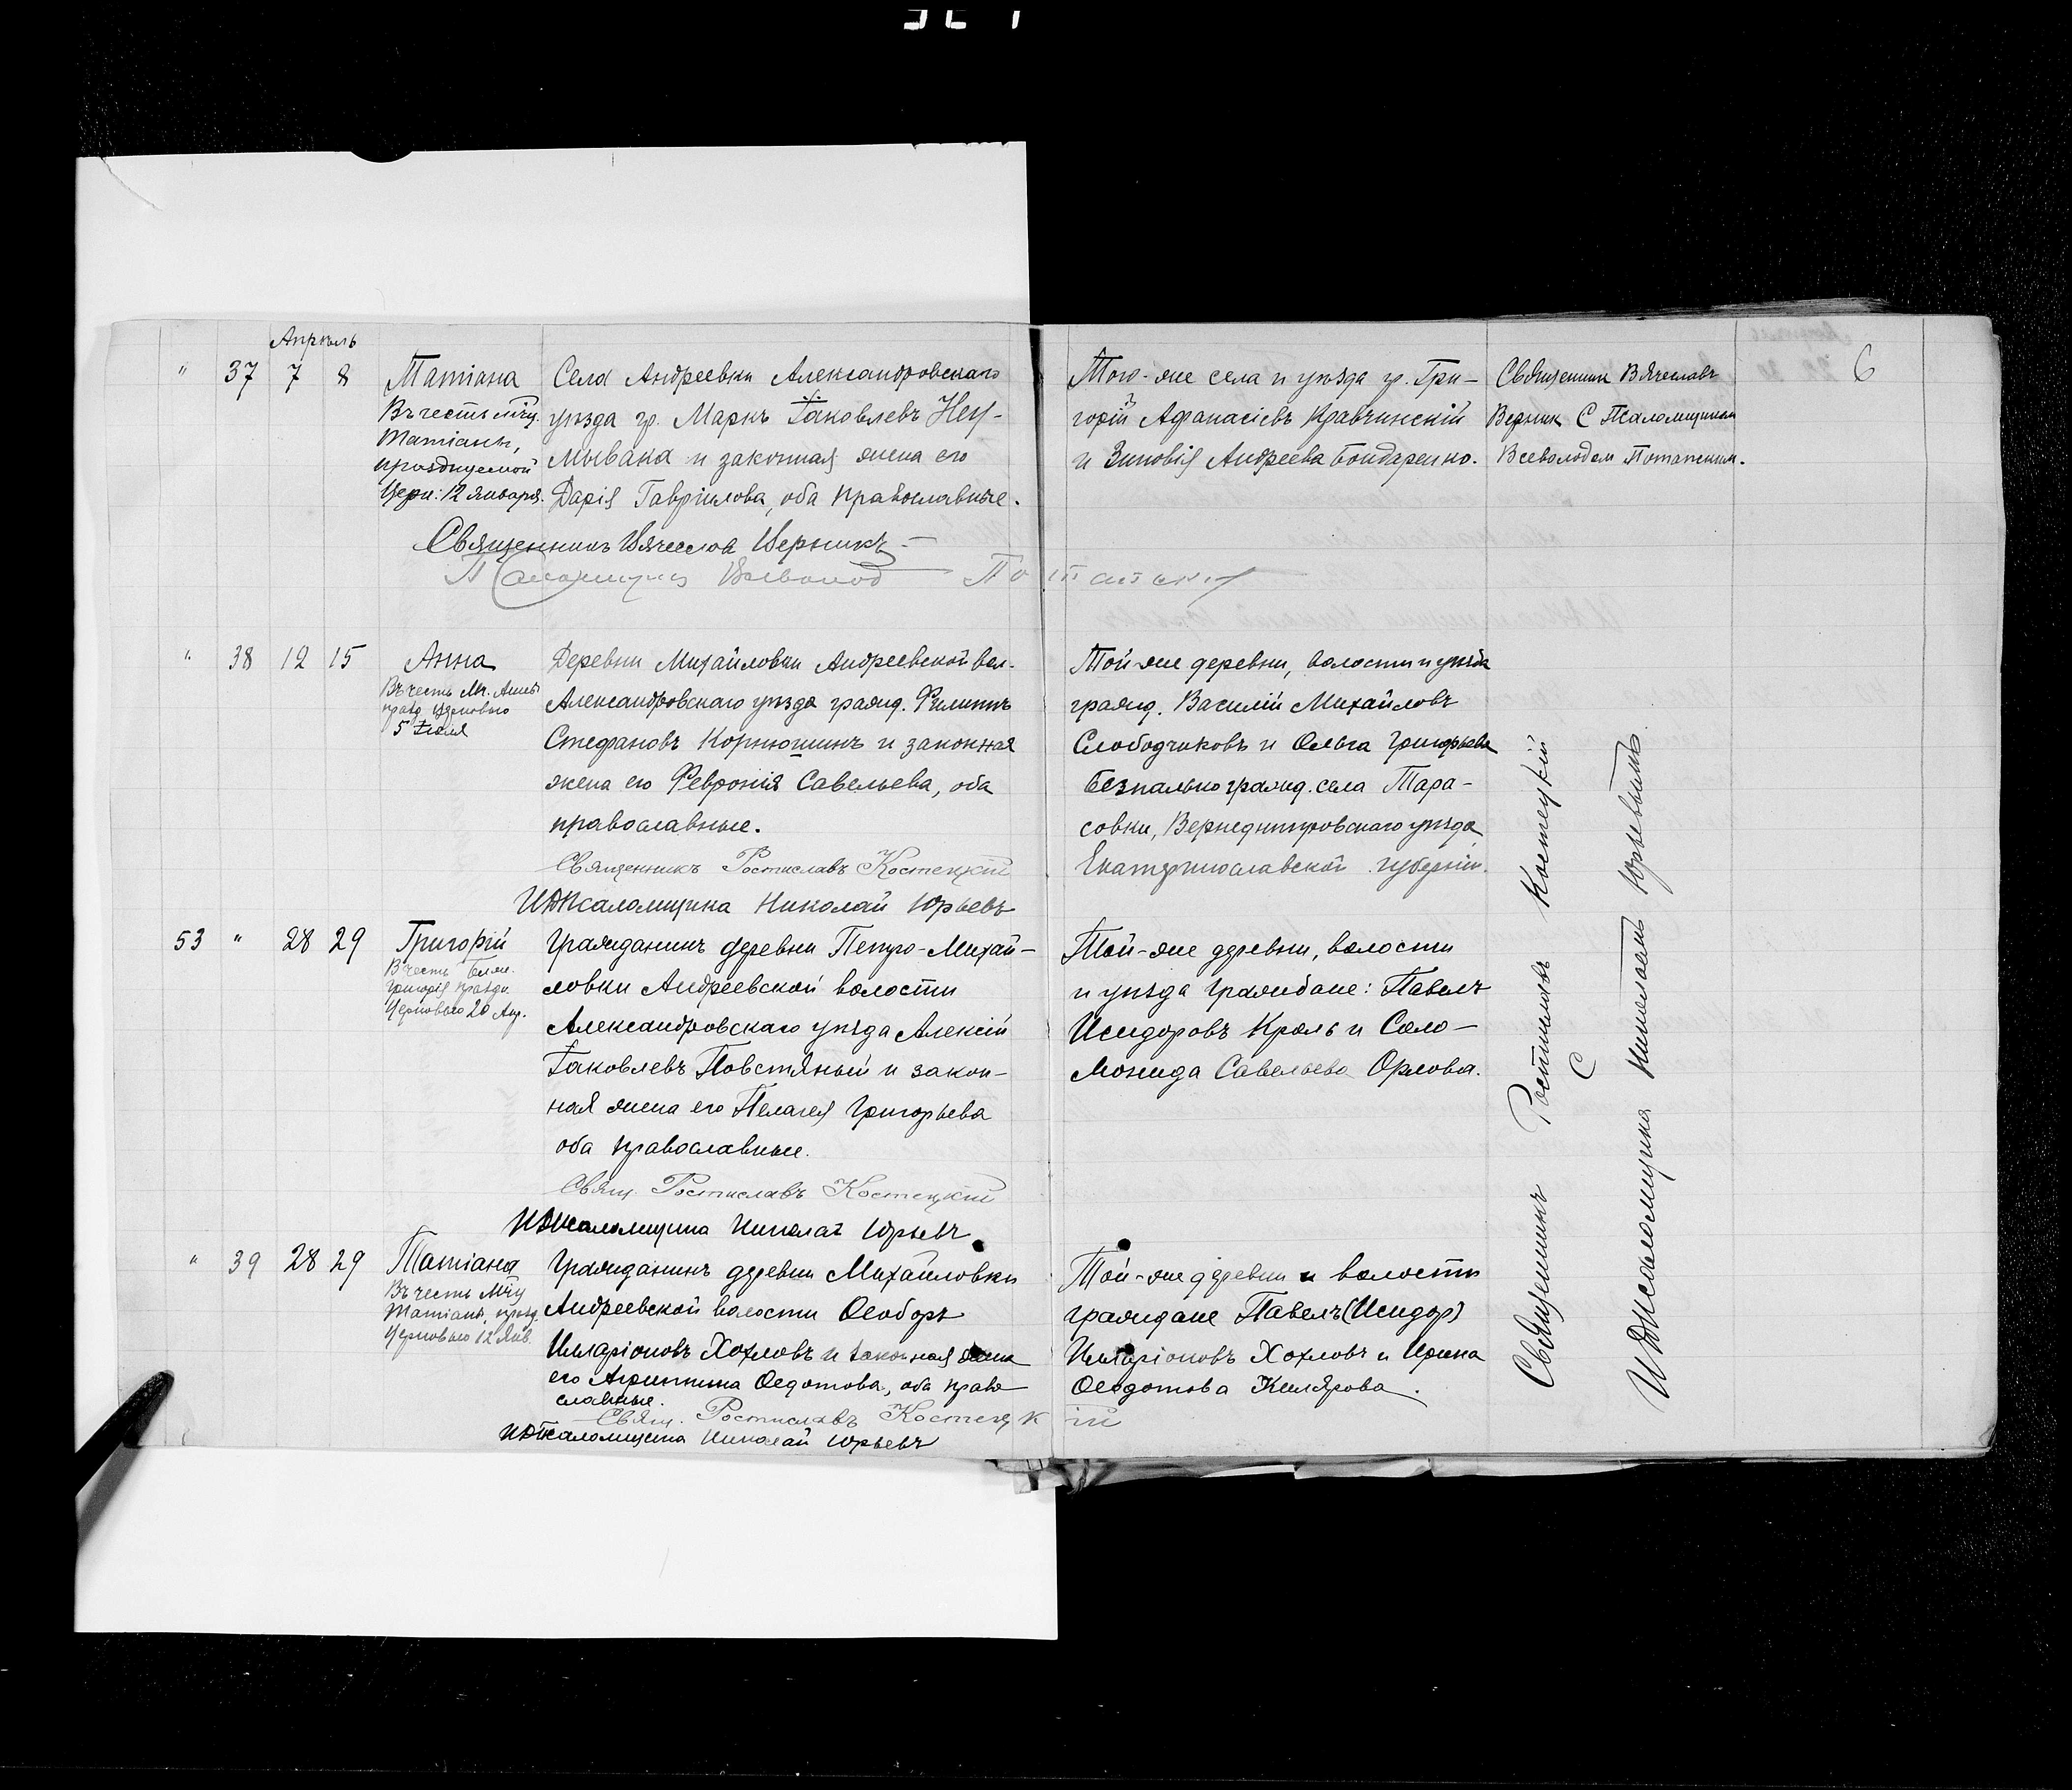 Апрѣль
" 37 7 8 Татiана
Въ честь мчц.
Татiаны,
празднуемой
Церк: 12 Января.
Села Андреевки Александровскаго
уѣзда гр. Маркъ Iаковлевъ Неу-
мывака и законная жена его
Дарiя Гаврiилова, оба православные.
Того-же села и уѣзда гр. Гри-
горiй Афанасiевъ Кравчинскiй
и Зиновiя Андреева Бондаренко.
Священник Вячеславъ
Верник С Псаломщиком
Всеволодом Потапским.
6
Священникъ Вячеслав Верникъ
Псаломщик Всеволод Потапскiй
" 38 12 15 Анна
Въ честь Мч. Анны
празд. Церковью
5 Iюля
Деревни Михайловки Андреевской вол.
Александровскаго уѣзда гражд. Филиппъ
Стефановъ Корнюшинъ и законная
жена его Февронiя Савельева, оба
православные.
Той-же деревни, волости и уѣзда
гражд. Василiй Михайловъ
Слободчиковъ и Ольга Григорьева
Безпалько гражд. села Тара-
совки, Верхнеднѣпровскаго уѣзда,
Екатеринославской губернiи.
Священникъ Ростиславъ Костецкiй
И.Д. Псаломщика Николай Юрьевъ
53 " 28 29 Григорiй
В честь
Григорiя праздн.
Церковью 20 Апр.
Гражданинъ деревни Петро-Михай-
ловки Андреевской волости
Александровскаго уѣзда Алексiй
Iаковлевъ Повстяный и закон-
ная жена его Пелагея Григорьева
оба православные.
Той-же деревни, волости
и уѣзда Граждане: Павелъ
Исидоровъ Кроль и Соло-
монида Савельева Орлова.
Свящ. Ростиславъ Костецкiй
И.Д. Псаломщика Николай Юрьевъ
" 39 28 29 Татiана
Въ честь Мчц
Татiаны, празд.
Церковью 12 Янв.
Гражданинъ деревни Михайловки
Андреевской волости Ѳеодоръ
Илларiоновъ Хохловъ и законная жена
его Агриппина Ѳедотова, оба право-
славные.
Той-же деревни и волости
граждане Павелъ (Исидор)
Илларiоновъ Хохловъ и Ирина
Ѳеодотова Килярова.
Свящ. Ростиславъ Костецкiй
И.Д. Псаломщика Николай Юрьевъ
Священникъ Ростиславъ Костецкiй
С
И.Д. Псаломщика Николаемъ Юрьевымъ.